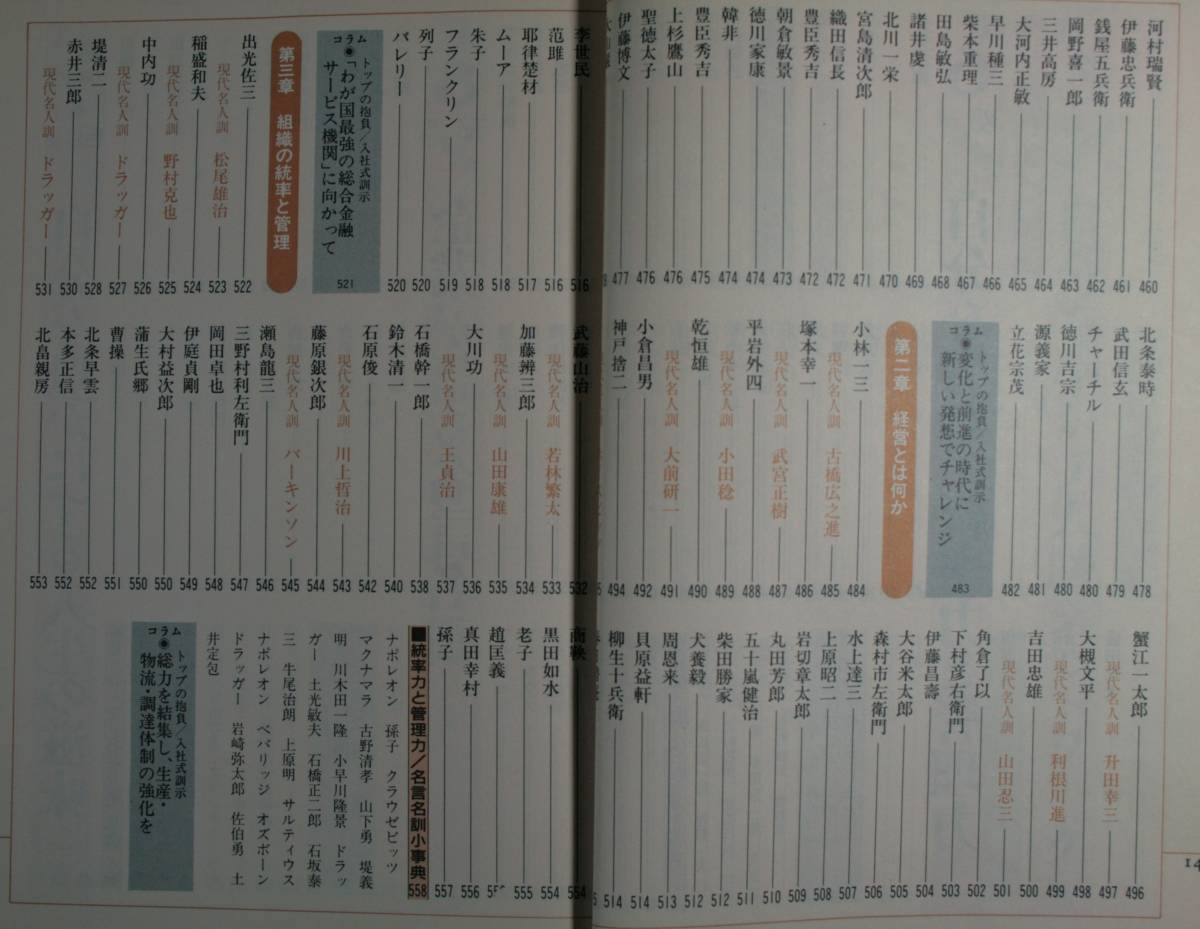 河村瑞賢 460
伊藤忠兵衛 461
銭屋五兵衛 462
岡野喜一郎 463
三井高房 464
大河内正敏 465
早川種三 466
柴本重理 467
田島敏弘 468
諸井虔 469
北川一栄 470
宮島清次郎 471
織田信長 472
豊臣秀吉 472
朝倉敏景 473
徳川家康 474
韓非 474
豊臣秀吉 475
上杉鷹山 476
聖徳太子 476
伊藤博文 477
北条泰時 478
武田信玄 479
チャーチル 480
徳川吉宗 480
源義家 481
立花宗茂 482
コラム
トップの抱負/入社式訓示
◉変化と前進の時代に
新しい発想でチャレンジ
483
第二章 経営とは何か
小林一三 484
現代名人訓 古橋広之進 485
塚本幸一 486
現代名人訓 武宮正樹 487
平岩外四 488
現代名人訓 小田稔 489
乾恒雄 490
現代名人訓 大前研一 491
小倉昌男 492
神戸捨二 494
蟹江一太郎 496
現代名人訓 升田幸三 497
大槻文平 498
現代名人訓 利根川進 499
吉田忠雄 500
現代名人訓 山田忍三 501
角倉了以 502
下村彦右衛門 503
伊藤昌壽 504
大谷米太郎 505
森村市左衛門 506
水上達三 507
上原昭二 508
岩切章太郎 509
丸田芳郎 510
五十嵐健治 511
柴田勝家 512
犬養毅 512
周恩来 513
貝原益軒 514
柳生十兵衛 514
14
李世民 516
范雎 516
耶律楚材 517
ムーア 518
朱子 518
フランクリン 519
列子 520
バレリー 520
コラム
トップの抱負/入社式訓示
◉「わが国最強の総合金融
サービス機関」に向かって
521
第三章 組織の統率と管理
出光佐三 522
現代名人訓 松尾雄治 523
稲盛和夫 524
現代名人訓 野村克也 525
中内功 526
現代名人訓 ドラッガー 527
堤清二 528
赤井三郎 530
現代名人訓 ドラッガー 531
武藤山治 532
現代名人訓 若林繁太 533
加藤辨三郎 534
現代名人訓 山田康雄 535
大川功 536
現代名人訓 王貞治 537
石橋幹一郎 538
鈴木清一 540
石原俊 542
現代名人訓 川上哲治 543
藤原銀次郎 544
現代名人訓 パーキンソン 545
瀬島龍三 546
三野村利左衛門 547
岡田卓也 548
伊庭貞剛 549
大村益次郎 550
蒲生氏郷 550
曹操 551
北条早雲 552
本多正信 552
北畠親房 553
商鞅 554
黒田如水 554
老子 555
趙匡義
真田幸村 556
孫子 557
■統率力と管理力/名言名訓小事典 558
ナポレオン 孫子 クラウゼビッツ
マクナマラ 古野清孝 山下勇 堤義
明 川木田一隆 小早川隆景 ドラッ
ガー 土光敏夫 石橋正二郎 石坂泰
三 牛尾治朗 上原明 サルティウス
ナポレオン ベバリッジ オズボーン
ドラッガー 岩崎弥太郎 佐伯勇 土
井定包
コラム
トップの抱負/入社式訓示
◉総力を結集し、生産・
物流・調達体制の強化を